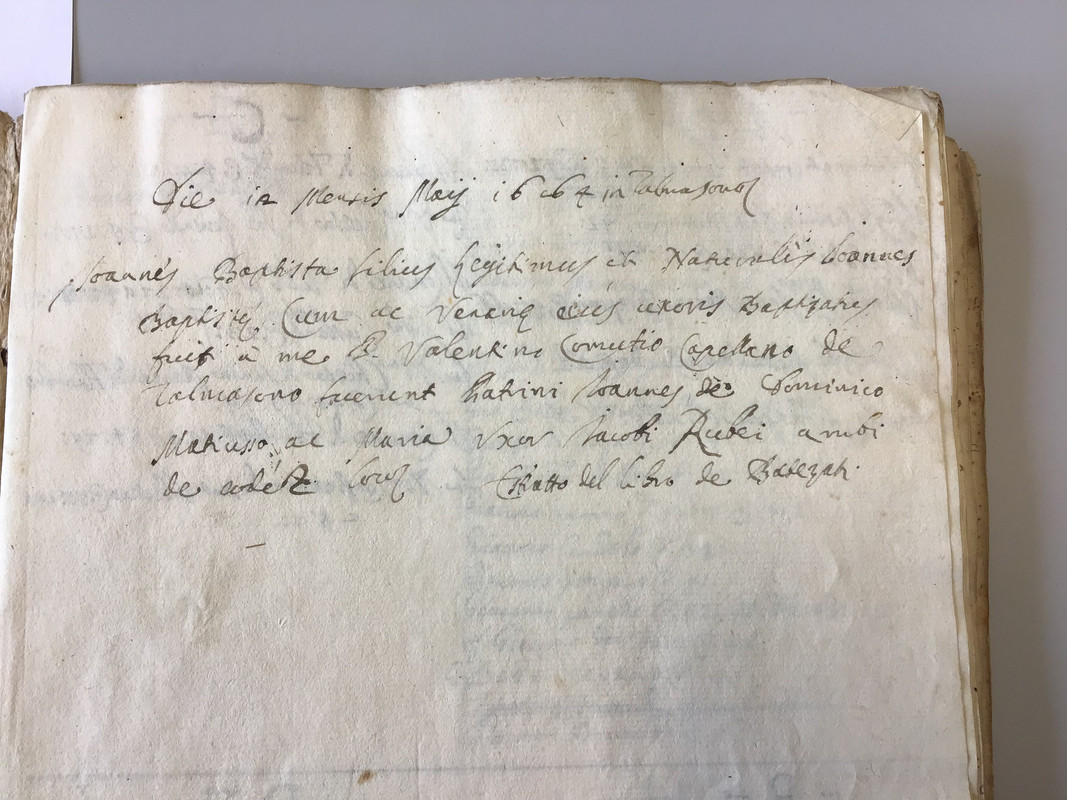 Die 12 Mensis Maij 1664 in Talmasonoȝ
Joannes Baptista filius legitimus et Naturalis Joannes
Baptistę Cum ac Venerię eius uxoris Baptizatus
fuit a me P. Valentino Comutio Capellano de
Talmasono fuerunt Patrini Joannes de Dominico
Matiusso ac Maria Uxor Jacobi Rubei ambi
de eodē Locoȝ Estratto del libro de Batezati